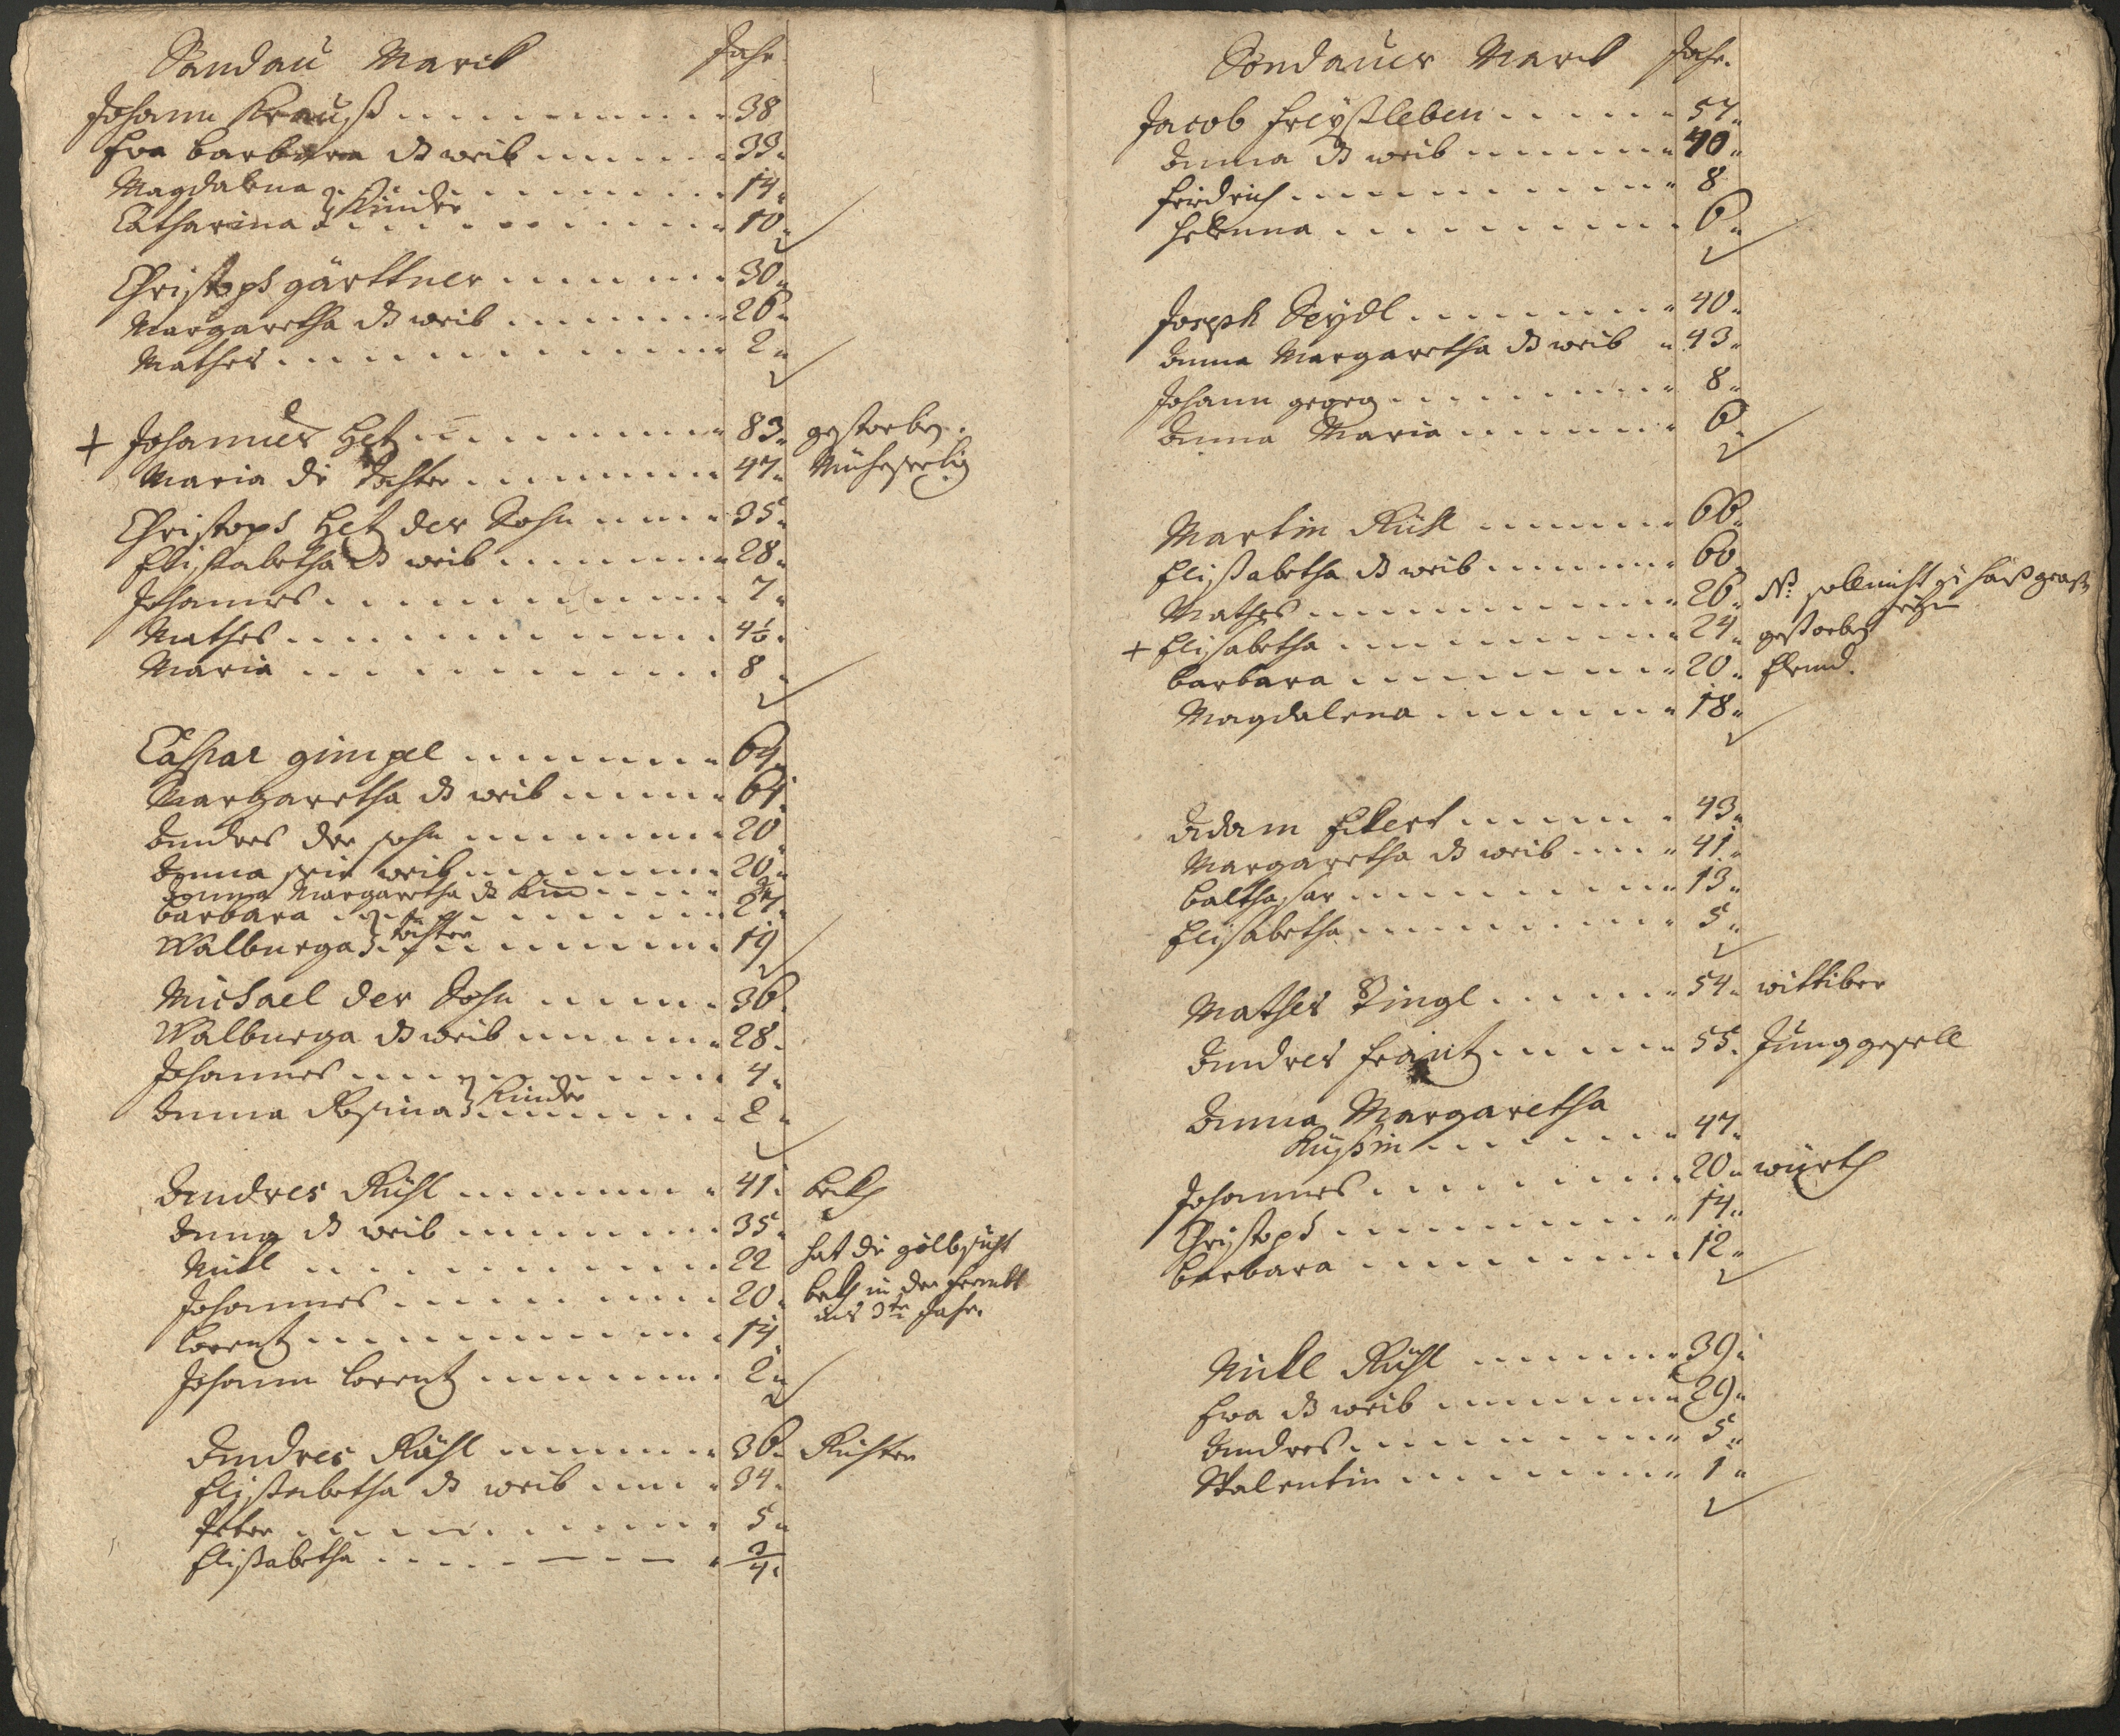 Sandau Marck Jahr
Johann Krauß 38
Eva Barbara ds weib 33
Magdalena 14
Catharina Kinder 10
Christoph gärttner 30
Margaretha ds weib 26
Mathes 2
+ Johannes Het 83 gestorben
Maria die Tochter 47 Müheseelig
Christoph Het der Sohn 35
Elisabetha ds weib 28
Johannes 7
Mathes 4½
Maria 8
Caspar gimpel 64
Margaretha ds weib 61
Andres der sohn 20
Anna sein weib 20
Anna Margaretha ds Kind
Barbara 27
Walburga töchter 19
Michael der Sohn 36
Walburga ds weib 28
Johannes 4
Anna Rosina Kinder 2
Andres Rühl 41 beckh
Anna ds weib 35
Nickl 22 hat die gölbsucht
Johannes 20 beckh in der frembt
ins 3te Jahr
Lorentz 14
Johann Lorentz 2
Andres Rühl 36 Richter
Elisabetha ds weib 34
Peter 5
Elisabetha 3/4
Sandauer Marck Jahr
Jacob Freyßleben 57
Anna ds weib 40
Fridrich 8
Helenna 6
Joseph Seydl 40
Anna Margaretha ds weib 43
Johann georg 8
Anna Maria 6
Martin Rühl 66
Elisabetha ds weib 60
Mathes 26 NB soll nicht zu hauß
+ Elisabetha 24 gestorben
Barbara 20
Magdalena 18
Adam Eckert 43
Margaretha ds weib 41
Balthasar 13
Elisabetha 5
Mathes Zingl 54 wittiber
Andres Frantz 55 Junggesell
Anna Margaretha
Rußin 47
Johannes 20 würth
Christoph 14
Barbara 12
Nickl Rühl 39
Eva ds weib 29
Andres 5
Valentin 1